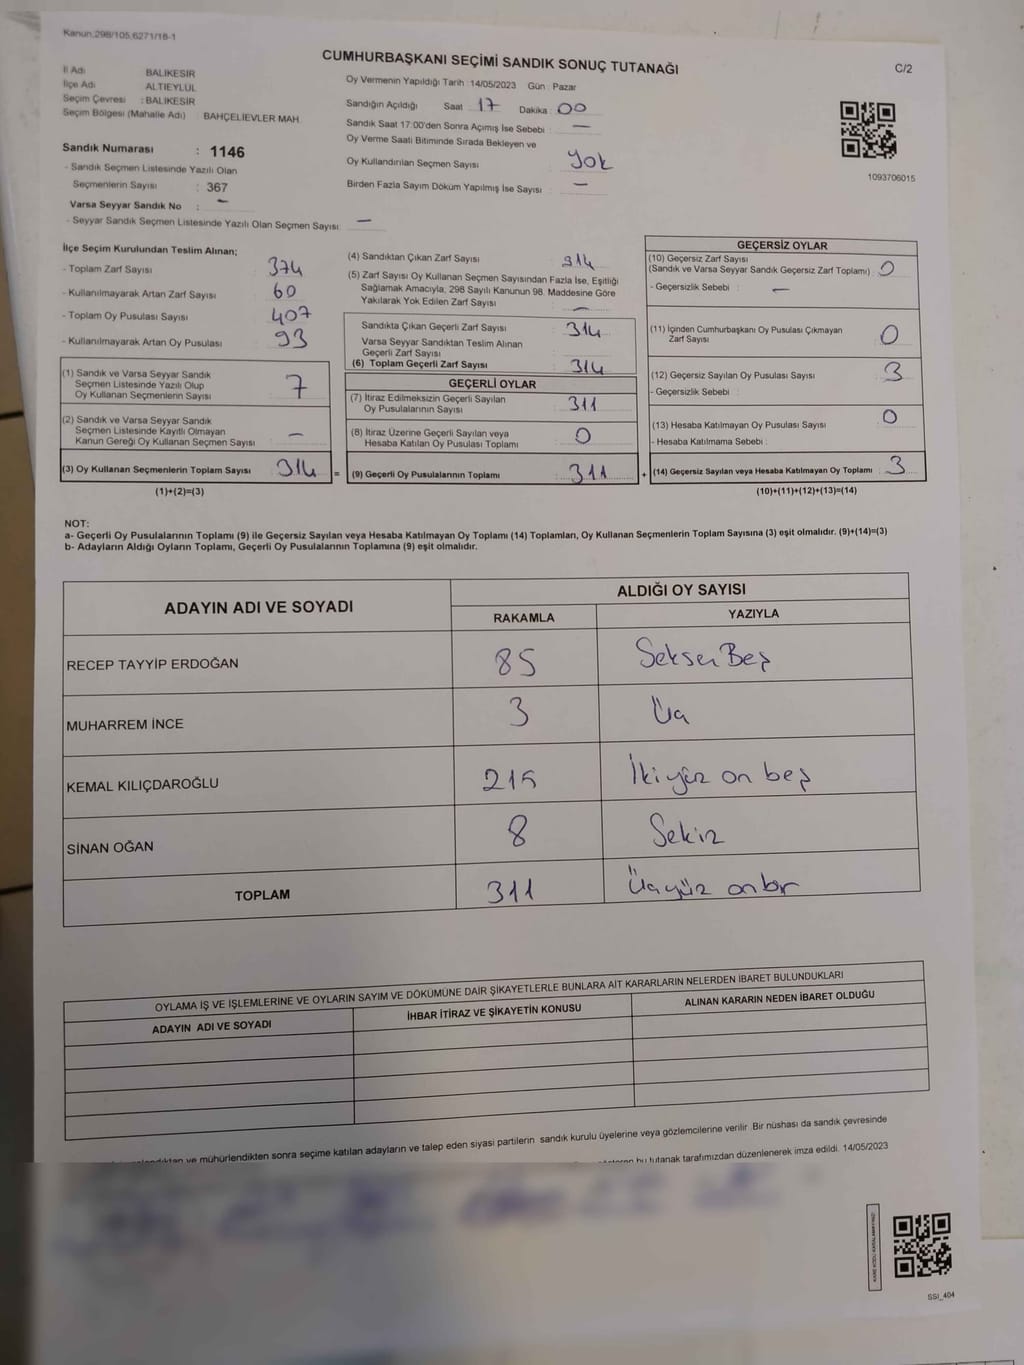 Kanun:298/105,6271/18-1
CUMHURBAŞKANI SEÇİMİ SANDIK SONUÇ TUTANAĞI
C/2
İl Adı : BALIKESİR
İlçe Adı : ALTIEYLÜL
Seçim Çevresi : BALIKESİR
Seçim Bölgesi (Mahalle Adı) : BAHÇELİEVLER MAH.
Sandık Numarası : 1146
- Sandık Seçmen Listesinde Yazılı Olan
Seçmenlerin Sayısı : 367
Varsa Seyyar Sandık No : -
- Seyyar Sandık Seçmen Listesinde Yazılı Olan Seçmen Sayısı: -
Oy Vermenin Yapıldığı Tarih :14/05/2023 Gün : Pazar
Sandığın Açıldığı Saat 17 Dakika : 00
Sandık Saat 17:00'den Sonra Açımış İse Sebebi : -
Oy Verme Saati Bitiminde Sırada Bekleyen ve
Oy Kullandırılan Seçmen Sayısı : Yok
Birden Fazla Sayım Döküm Yapılmış İse Sayısı : -
1093706015
İlçe Seçim Kurulundan Teslim Alınan;
- Toplam Zarf Sayısı : 374
- Kullanılmayarak Artan Zarf Sayısı : 60
- Toplam Oy Pusulası Sayısı : 407
- Kullanılmayarak Artan Oy Pusulası : 93
(1) Sandık ve Varsa Seyyar Sandık
Seçmen Listesinde Yazılı Olup
Oy Kullanan Seçmenlerin Sayısı : 7
(2) Sandık ve Varsa Seyyar Sandık
Seçmen Listesinde Kayıtlı Olmayan
Kanun Gereği Oy Kullanan Seçmen Sayısı : -
(3) Oy Kullanan Seçmenlerin Toplam Sayısı : 314 =
(1)+(2)=(3)
(4) Sandıktan Çıkan Zarf Sayısı : 314
(5) Zarf Sayısı Oy Kullanan Seçmen Sayısından Fazla İse, Eşitliği
Sağlamak Amacıyla; 298 Sayılı Kanunun 98. Maddesine Göre
Yakılarak Yok Edilen Zarf Sayısı : -
Sandıkta Çıkan Geçerli Zarf Sayısı : 314
Varsa Seyyar Sandıktan Teslim Alınan
Geçerli Zarf Sayısı :
(6) Toplam Geçerli Zarf Sayısı : 314
GEÇERLİ OYLAR
(7) İtiraz Edilmeksizin Geçerli Sayılan
Oy Pusulalarının Sayısı : 311
(8) İtiraz Üzerine Geçerli Sayılan veya
Hesaba Katılan Oy Pusulası Toplamı : 0
(9) Geçerli Oy Pusulalarının Toplamı : 311 +
GEÇERSİZ OYLAR
(10) Geçersiz Zarf Sayısı
(Sandık ve Varsa Seyyar Sandık Geçersiz Zarf Toplamı) : 0
- Geçersizlik Sebebi : -
(11) İçinden Cumhurbaşkanı Oy Pusulası Çıkmayan
Zarf Sayısı : 0
(12) Geçersiz Sayılan Oy Pusulası Sayısı : 3
- Geçersizlik Sebebi :
(13) Hesaba Katılmayan Oy Pusulası Sayısı : 0
- Hesaba Katılmama Sebebi :
(14) Geçersiz Sayılan veya Hesaba Katılmayan Oy Toplamı : 3
(10)+(11)+(12)+(13)=(14)
NOT:
a- Geçerli Oy Pusulalarının Toplamı (9) ile Geçersiz Sayılan veya Hesaba Katılmayan Oy Toplamı (14) Toplamları, Oy Kullanan Seçmenlerin Toplam Sayısına (3) eşit olmalıdır. (9)+(14)=(3)
b- Adayların Aldığı Oyların Toplamı, Geçerli Oy Pusulalarının Toplamına (9) eşit olmalıdır.
ADAYIN ADI VE SOYADI ALDIĞI OY SAYISI
RAKAMLA YAZIYLA
RECEP TAYYİP ERDOĞAN 85 Seksen Beş
MUHARREM İNCE 3 Üç
KEMAL KILIÇDAROĞLU 215 İkiyüz on beş
SİNAN OĞAN 8 Sekiz
TOPLAM 311 Üçyüz onbir
OYLAMA İŞ VE İŞLEMLERİNE VE OYLARIN SAYIM VE DÖKÜMÜNE DAİR ŞİKAYETLERLE BUNLARA AİT KARARLARIN NELERDEN İBARET BULUNDUKLARI
ADAYIN ADI VE SOYADI İHBAR İTİRAZ VE ŞİKAYETİN KONUSU ALINAN KARARIN NEDEN İBARET OLDUĞU
ve mühürlendikten sonra seçime katılan adayların ve talep eden siyasi partilerin sandık kurulu üyelerine veya gözlemcilerine verilir. Bir nüshası da sandık çevresinde
bu tutanak tarafımızdan düzenlenerek imza edildi. 14/05/2023
SSI_404